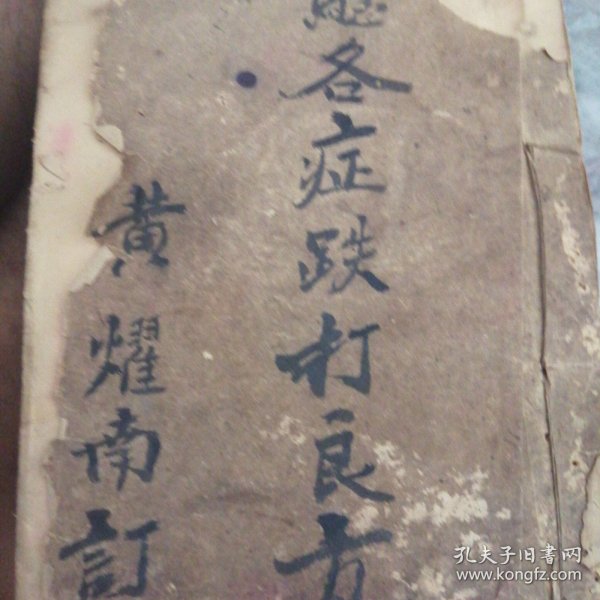 各症跌打良方
黄耀南訂
孔夫子旧書网
www.kongfz.com